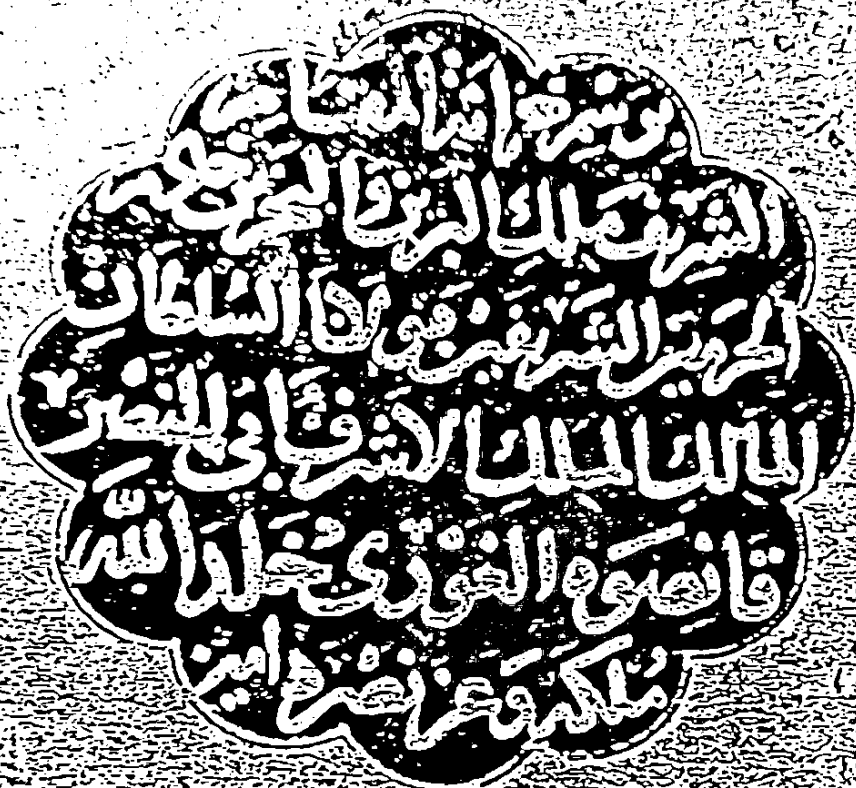 برسم مولانا المقام
الشريف ملك البرين والبحرين خادم
الحرمين الشريفين مولانا السلطان
المالك الملك الاشرف ابى النصر
قانصوه الغورى خلد الله
ملكه وعز نصره امين